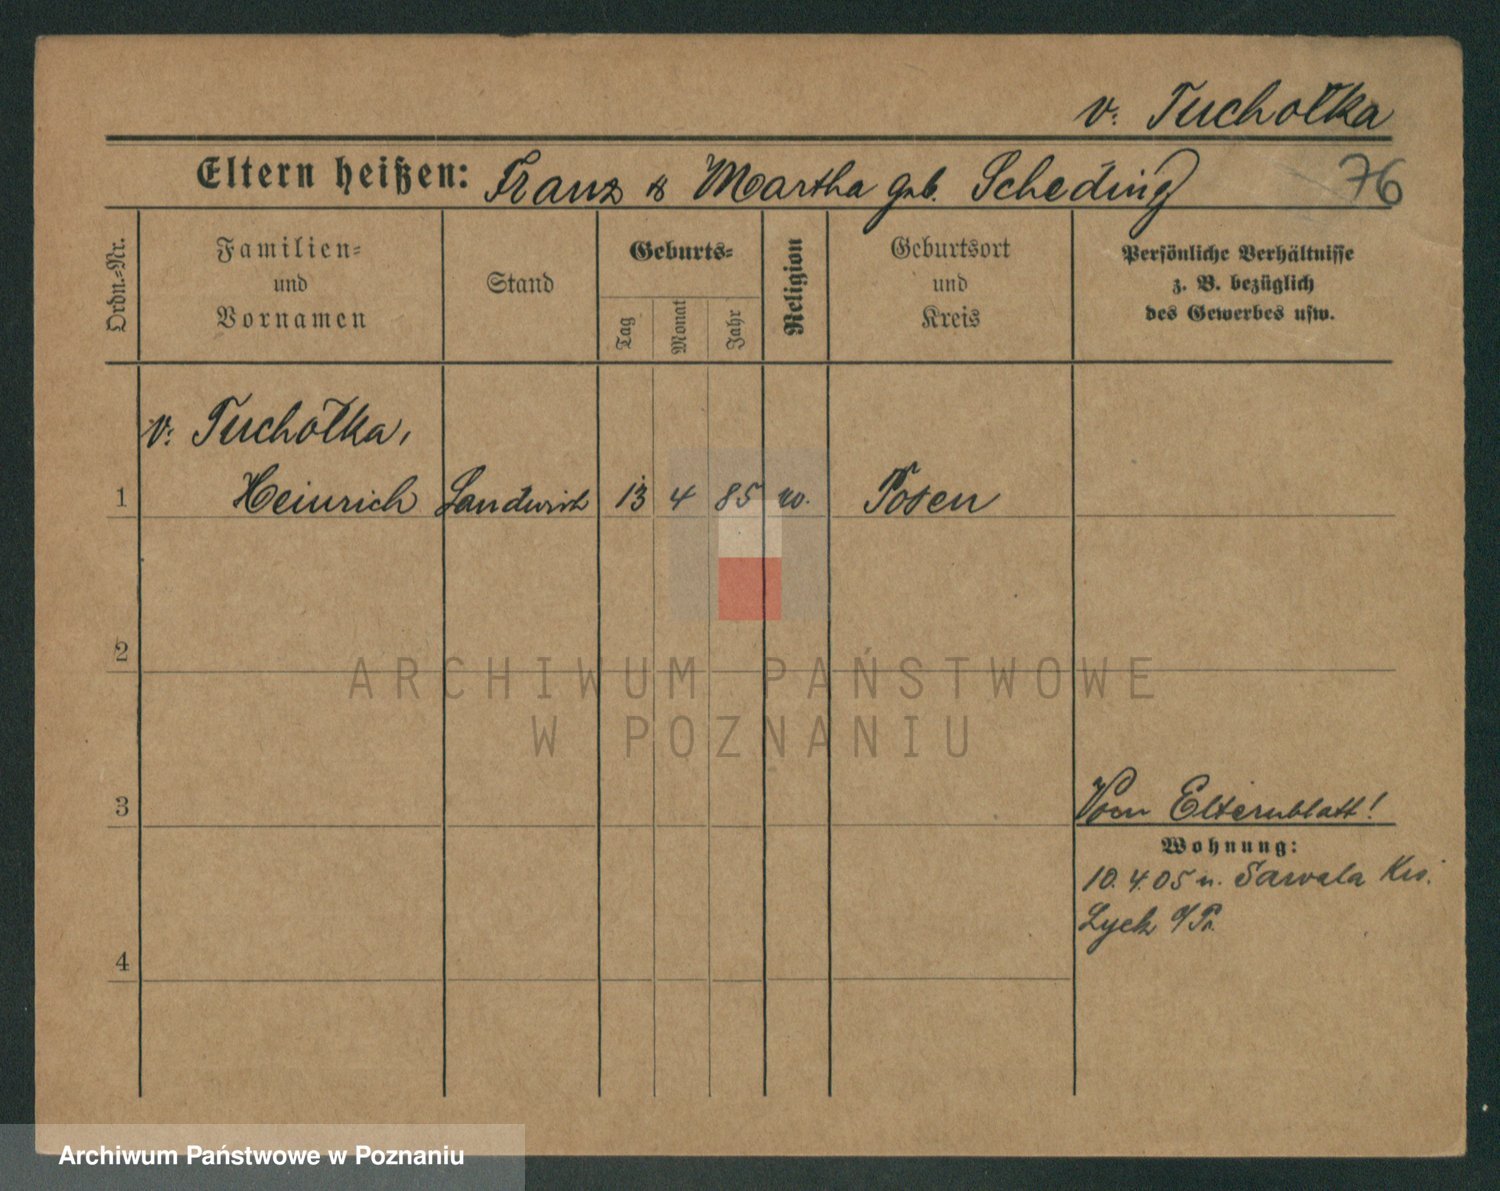 v. Tuchołka
Eltern heißen: Franz & Martha geb. Scheding 76
Ordn.-Nr.
Familien-
und
Vornamen
Stand
Geburts-
Tag
Monat
Jahr
Religion
Geburtsort
und
Kreis
Persönliche Verhältnisse
z. B. bezüglich
des Gewerbes usw.
v. Tuchołka,
1 Heinrich Landwirt 13 4 85 Posen
2
ARCHIWUM PAŃSTWOWE
W POZNANIU
3
Vom Elternblatt!
Wohnung:
10.4.05 n. Sawala Krs.
Lyck O/Pr.
4
Archiwum Państwowe w Poznaniu